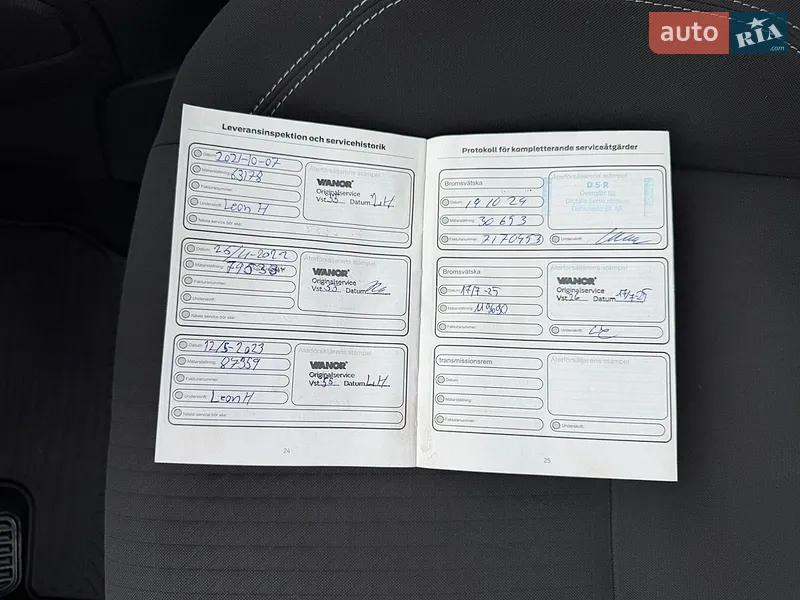 auto RIA .com
Leveransinspektion och servicehistorik
Datum 2021-10-07
Mätarställning 63178
Fakturanummer
Underskrift Leon H
Nästa service bör ske:
Återförsäljarens stämpel
WANOR
Originalservice
Vst. 33 Datum LH
Datum 25/11-2022
Mätarställning
Fakturanummer
Underskrift
Nästa service bör ske:
Återförsäljarens stämpel
WANOR
Originalservice
Vst. 33 Datum
Datum 12/5-2023
Mätarställning 87359
Fakturanummer
Underskrift Leon H
Nästa service bör ske:
Återförsäljarens stämpel
WANOR
Originalservice
Vst. 33 Datum LH
24
Protokoll för kompletterande serviceåtgärder
Bromsvätska
Datum 191029
Mätarställning 30653
Fakturanummer 2170453
Återförsäljarens stämpel
DSR
Underskrift
Bromsvätska
Datum 17/7-25
Mätarställning 119690
Fakturanummer
Återförsäljarens stämpel
WANOR
Originalservice
Vst. 26 Datum 17/7-25
Underskrift
transmissionsrem
Datum
Mätarställning
Fakturanummer
Återförsäljarens stämpel
Underskrift
25